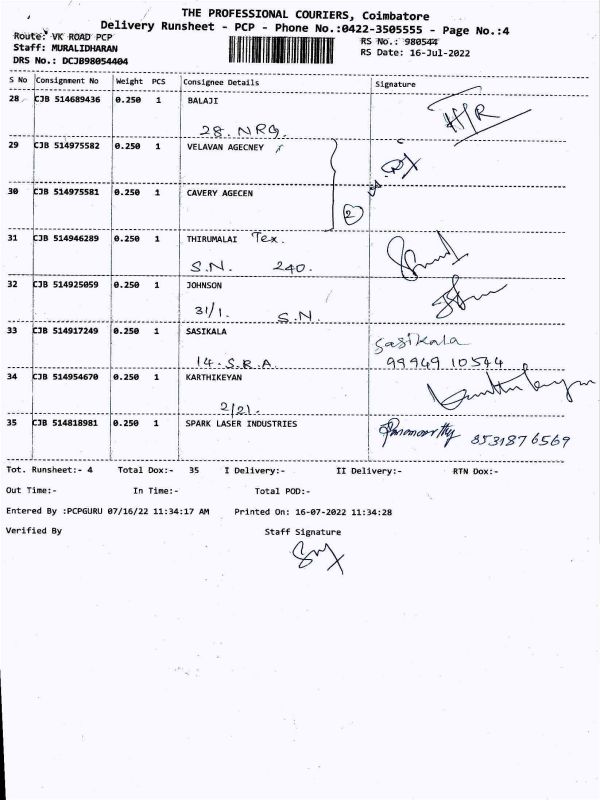 THE PROFESSIONAL COURIERS, Coimbatore
Delivery Runsheet - PCP - Phone No.:0422-3505555 - Page No.:4
Route: VK ROAD PCP RS No.: 980544
Staff: MURALIDHARAN RS Date: 16-Jul-2022
DRS No.: DCJB98054404
S No Consignment No Weight PCS Consignee Details Signature
28 CJB 514689436 0.250 1 BALAJI
28. NRG.
29 CJB 514975582 0.250 1 VELAVAN AGECNEY
30 CJB 514975581 0.250 1 CAVERY AGECEN
2
31 CJB 514946289 0.250 1 THIRUMALAI Tex.
S.N. 240.
32 CJB 514925059 0.250 1 JOHNSON
31/1. S.N.
33 CJB 514917249 0.250 1 SASIKALA Sasikala
14. S.R.A. 99949 10544
34 CJB 514954670 0.250 1 KARTHIKEYAN
2/21.
35 CJB 514818981 0.250 1 SPARK LASER INDUSTRIES 8531876569
Tot. Runsheet:- 4 Total Dox:- 35 I Delivery:- II Delivery:- RTN Dox:-
Out Time:- In Time:- Total POD:-
Entered By :PCPGURU 07/16/22 11:34:17 AM Printed On: 16-07-2022 11:34:28
Verified By Staff Signature